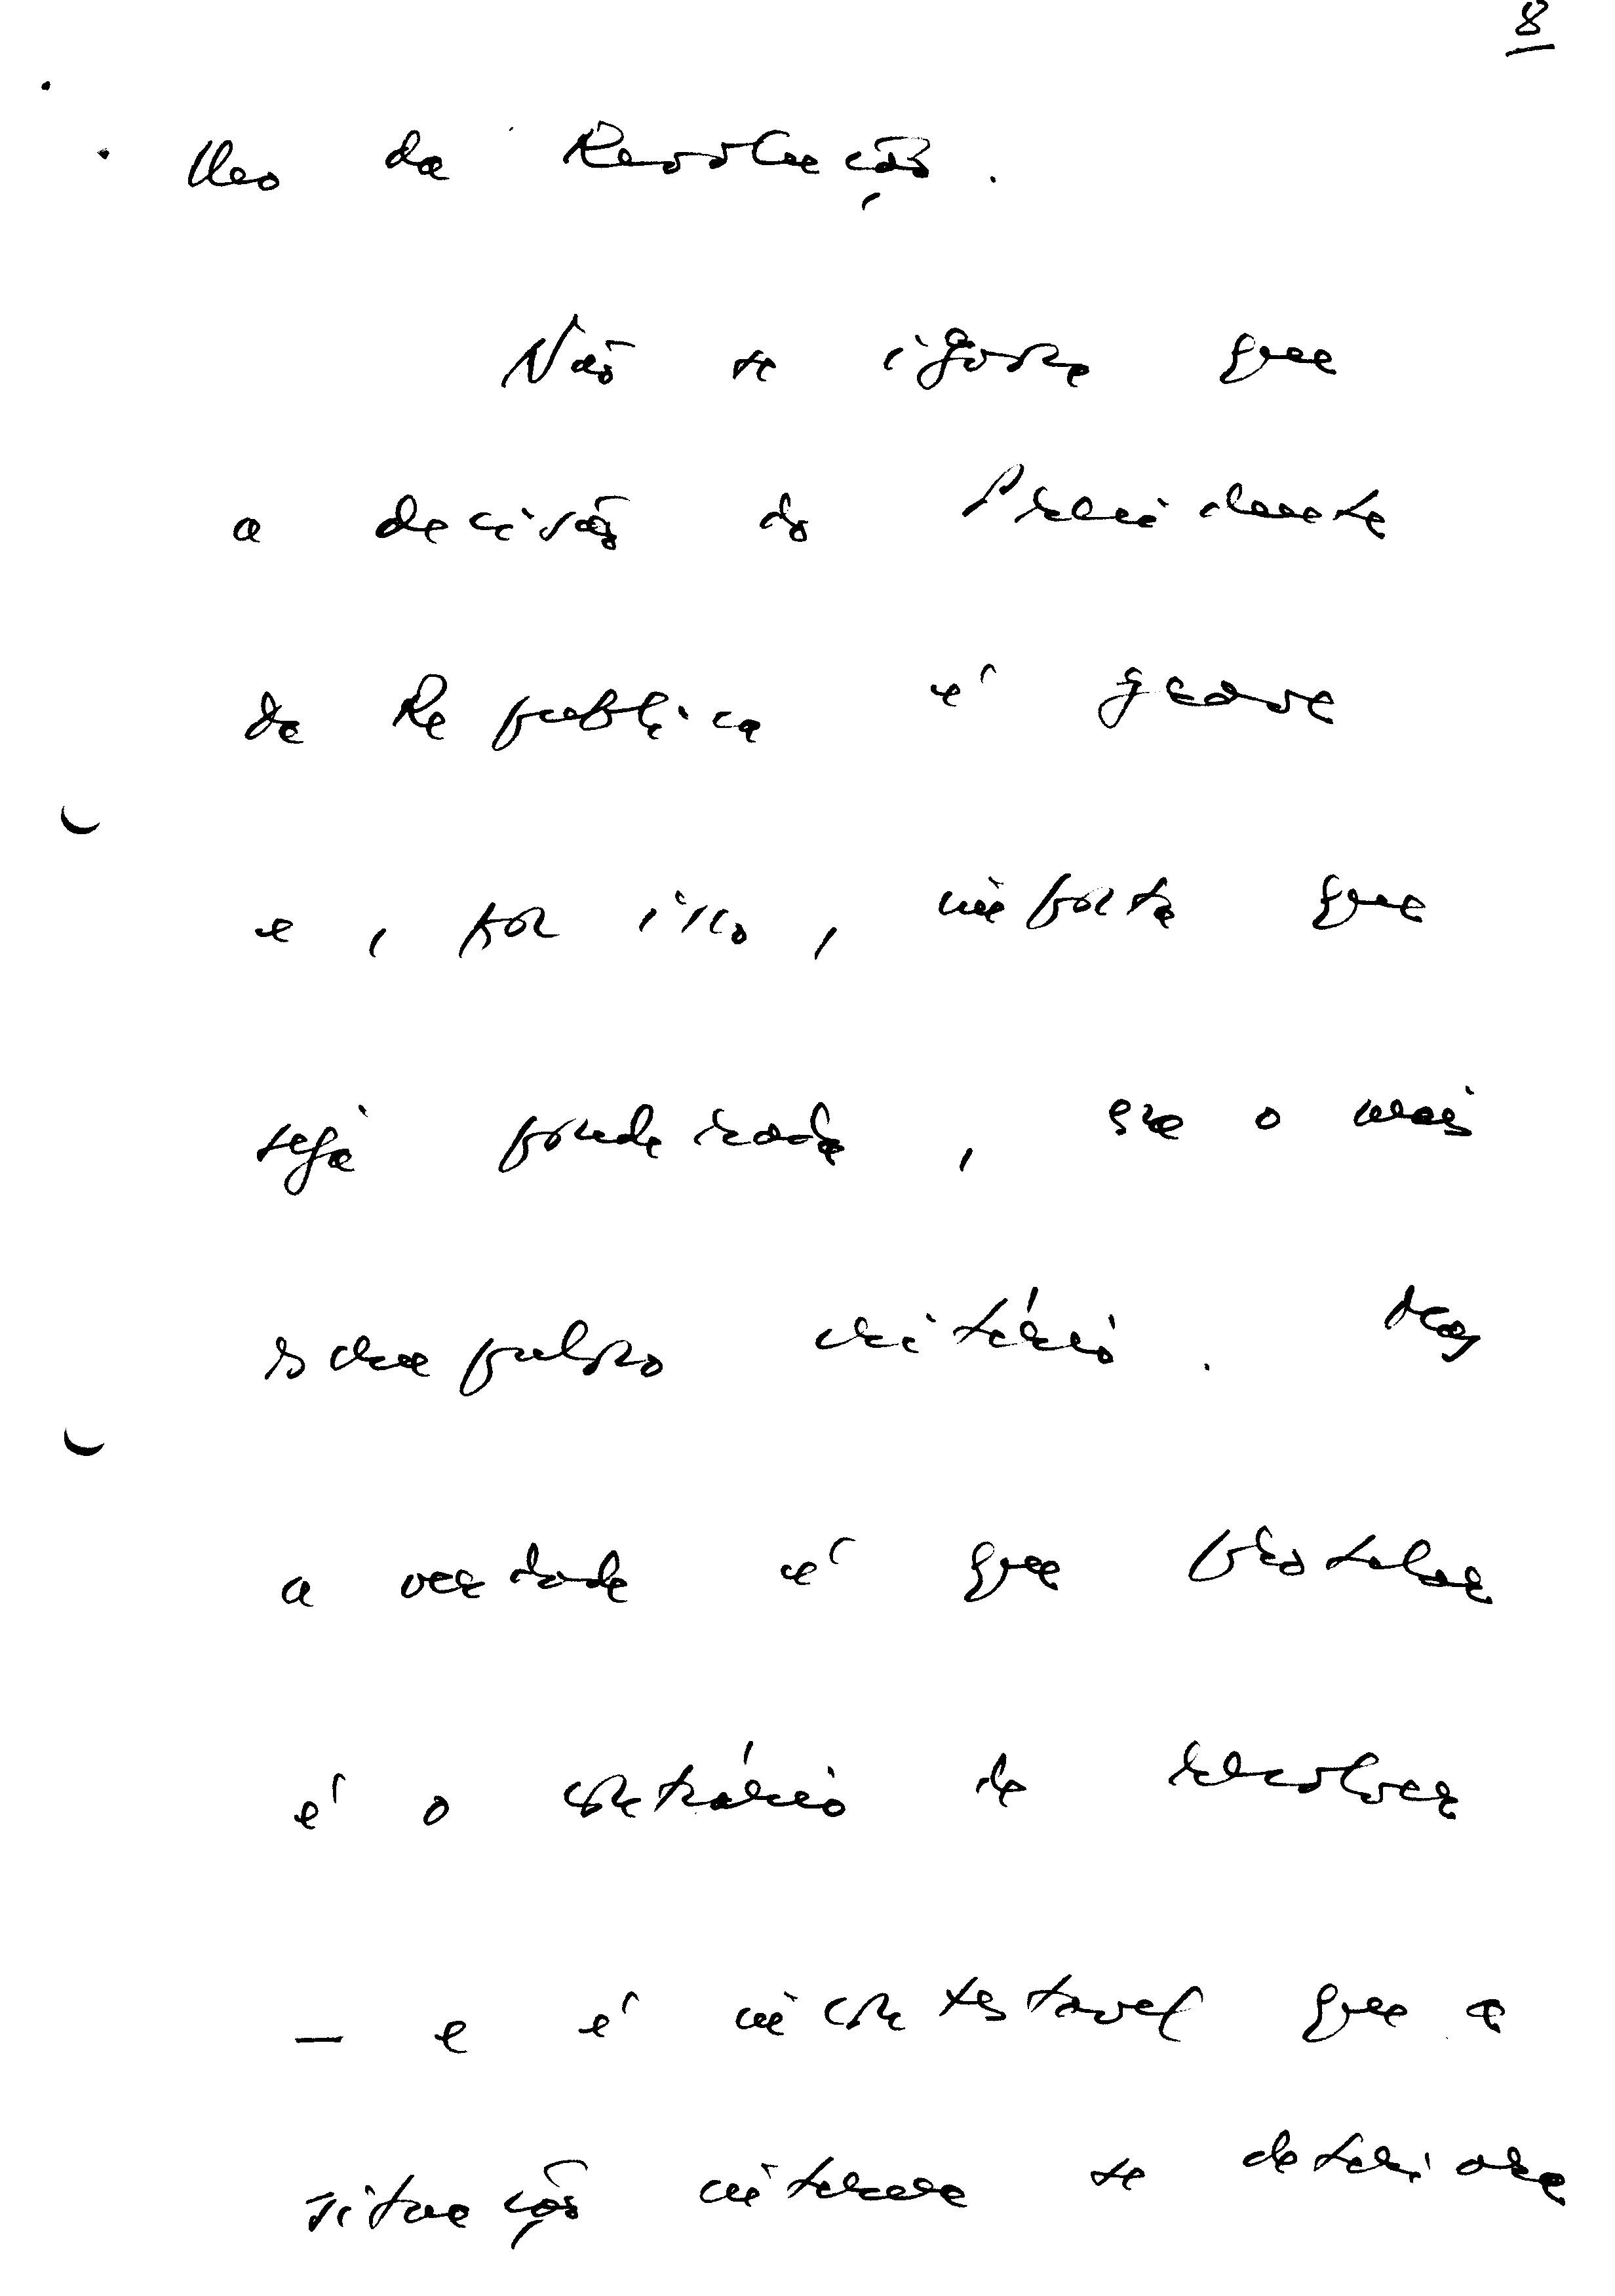 8
da Revolução.
Não se ignora que
a decisão do Presidente
da Republica é grave
e, por isso, importa que
seja ponderada, com o mais
escrupuloso critério. Mas
a verdade é que protelar
é o contrário de resolver
— e é incontestavel que a
situação interna se deteriora